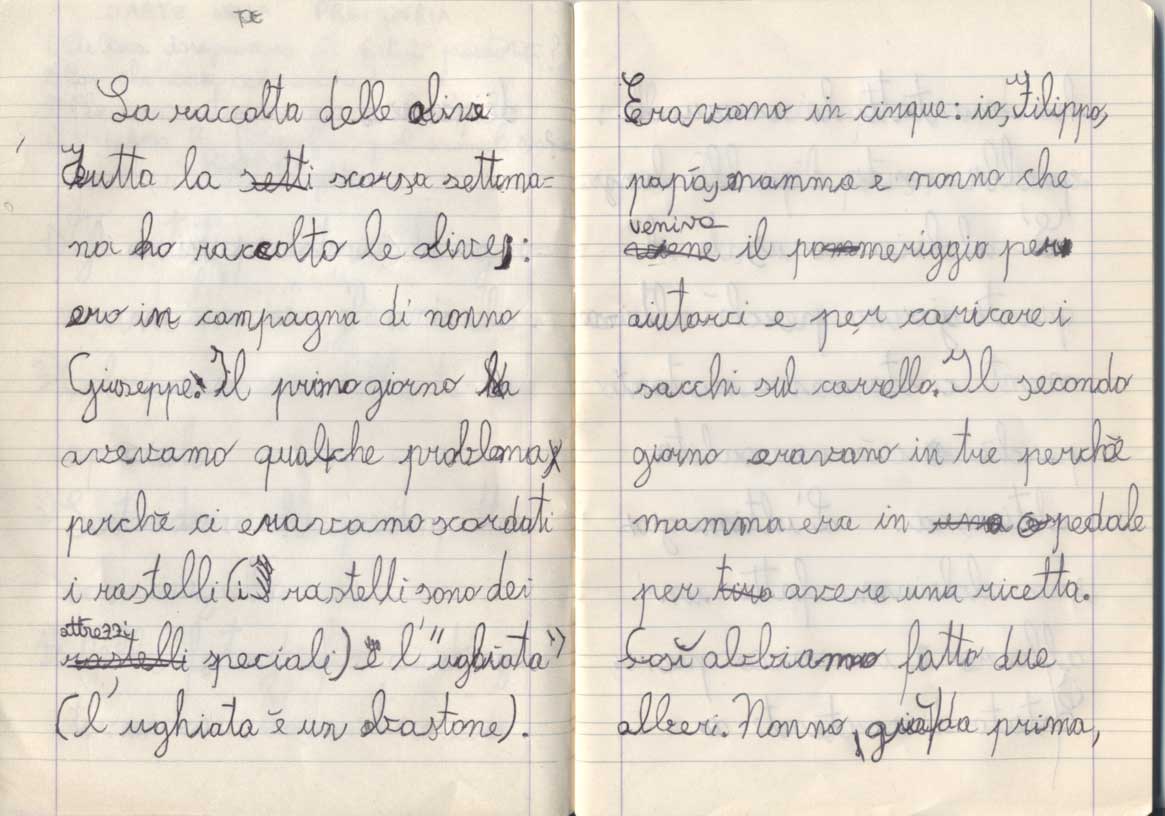 La raccolta delle olive
Tutta la setti scorsa settima=
na ho raccolto le olive:
ero in campagna di nonno
Giuseppe. Il primo giorno
avevamo qualche problema
perchè ci eravamo scordati
i rastelli (i rastelli sono dei
attrezzi
rastelli speciali) e l'"ughiata"
(l'ughiata è un bastone).
Eravamo in cinque: io, Filippo,
papà, mamma e nonno che
veniva
viene il pomeriggio per
aiutarci e per caricare i
sacchi sul carrello. Il secondo
giorno eravano in tre perchè
mamma era in una ospedale
per avere una ricetta.
Così abbiamo fatto due
alberi. Nonno, già da prima,